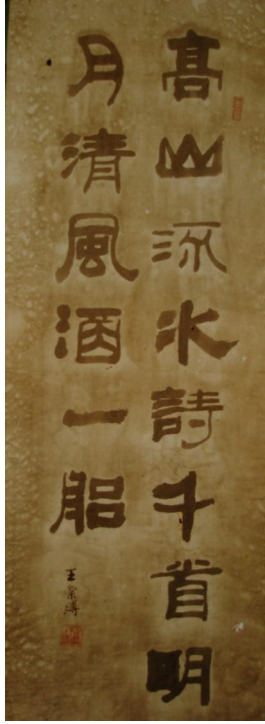 高山流水詩千首明
月清風酒一船
王